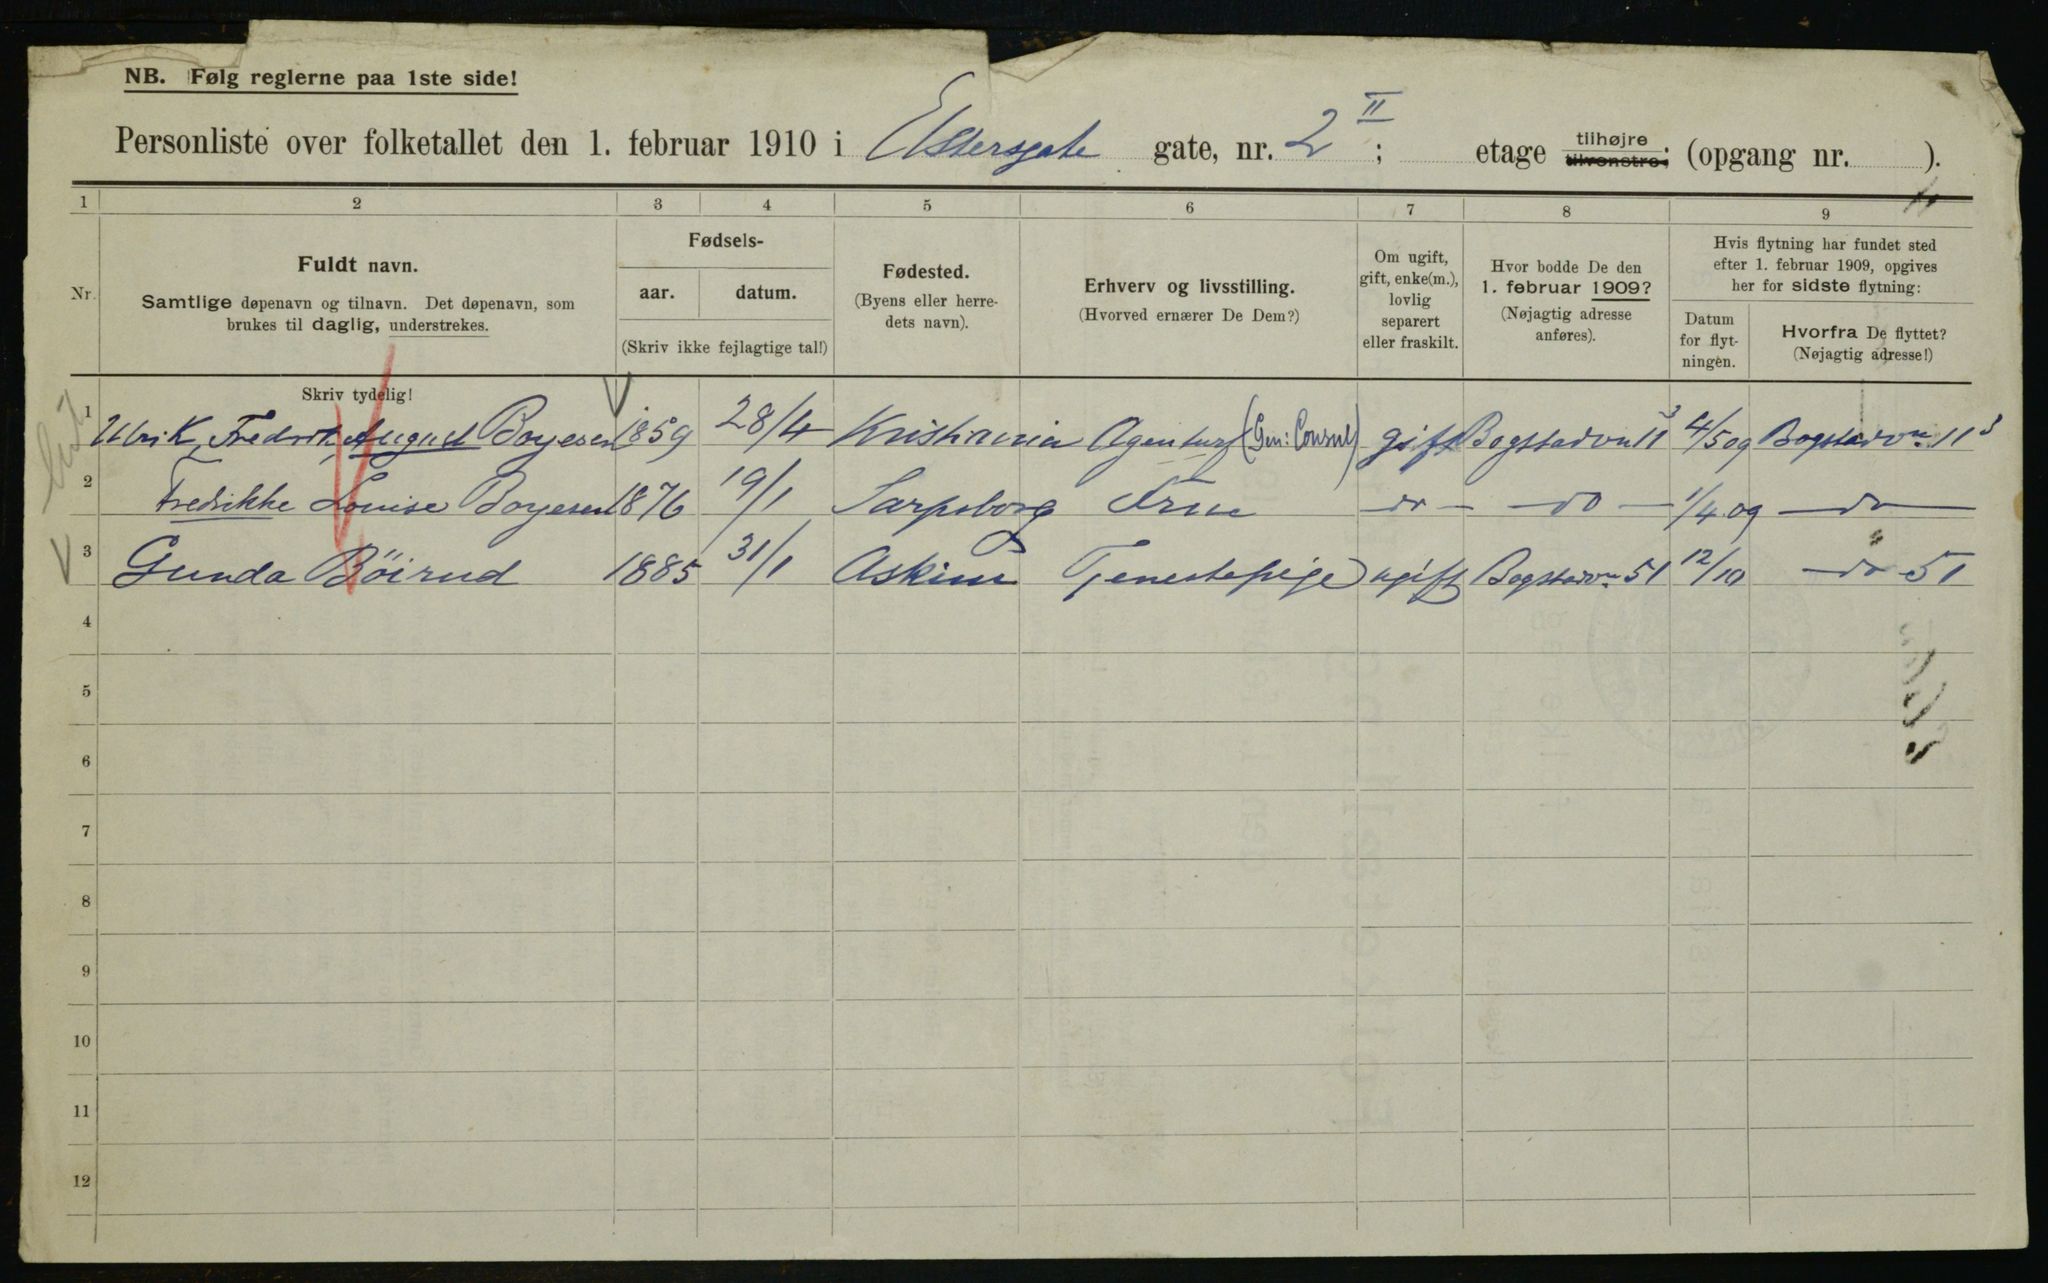 NB. Følg reglerne paa 1ste side!
Personliste over folketallet den 1. februar 1910 i Elstersgate gate, nr. 2 II; etage tilhøjre tilvenstre; (opgang nr. ).
1 2 3 4 5 6 7 8 9
Nr.
Fuldt navn.
Samtlige døpenavn og tilnavn. Det døpenavn, som
brukes til daglig, understrekes.
Fødsels-
aar. datum.
(Skriv ikke fejlagtige tal!)
Fødested.
(Byens eller herre-
dets navn).
Erhverv og livsstilling.
(Hvorved ernærer De Dem?)
Om ugift,
gift, enke(m.),
lovlig
separert
eller fraskilt.
Hvor bodde De den
1. februar 1909?
(Nøjagtig adresse
anføres).
Hvis flytning har fundet sted
efter 1. februar 1909, opgives
her for sidste flytning:
Datum
for flyt-
ningen.
Hvorfra De flyttet?
(Nøjagtig adresse!)
Skriv tydelig!
1 Ulrik Fredrik August Boyesen 1859 28/4 Kristiania Agentur (Gen: Consul) gift Bogstadvn 11 3 4/5 09 Bogstadvn. 11 3
2 Fredrikke Louise Boyesen 1876 19/1 Sarpsborg Frue do - do - 1/4 09 - do -
3 Gunda Böirud 1885 31/1 Askim Tjenestepige ugift Bogstadvn 51 12/10 - do 51
4
5
6
7
8
9
10
11
12